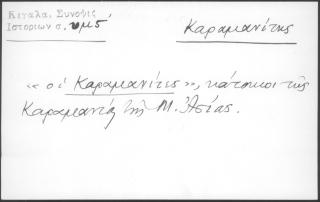 Κιγάλα, Σύνοψις
Ιστοριων σ. υμς΄
Καραμανίτης
«οἱ Καραμανίτες», κάτοικοι τῆς
Καραμανίας τῆς Μ. Ἀσίας.